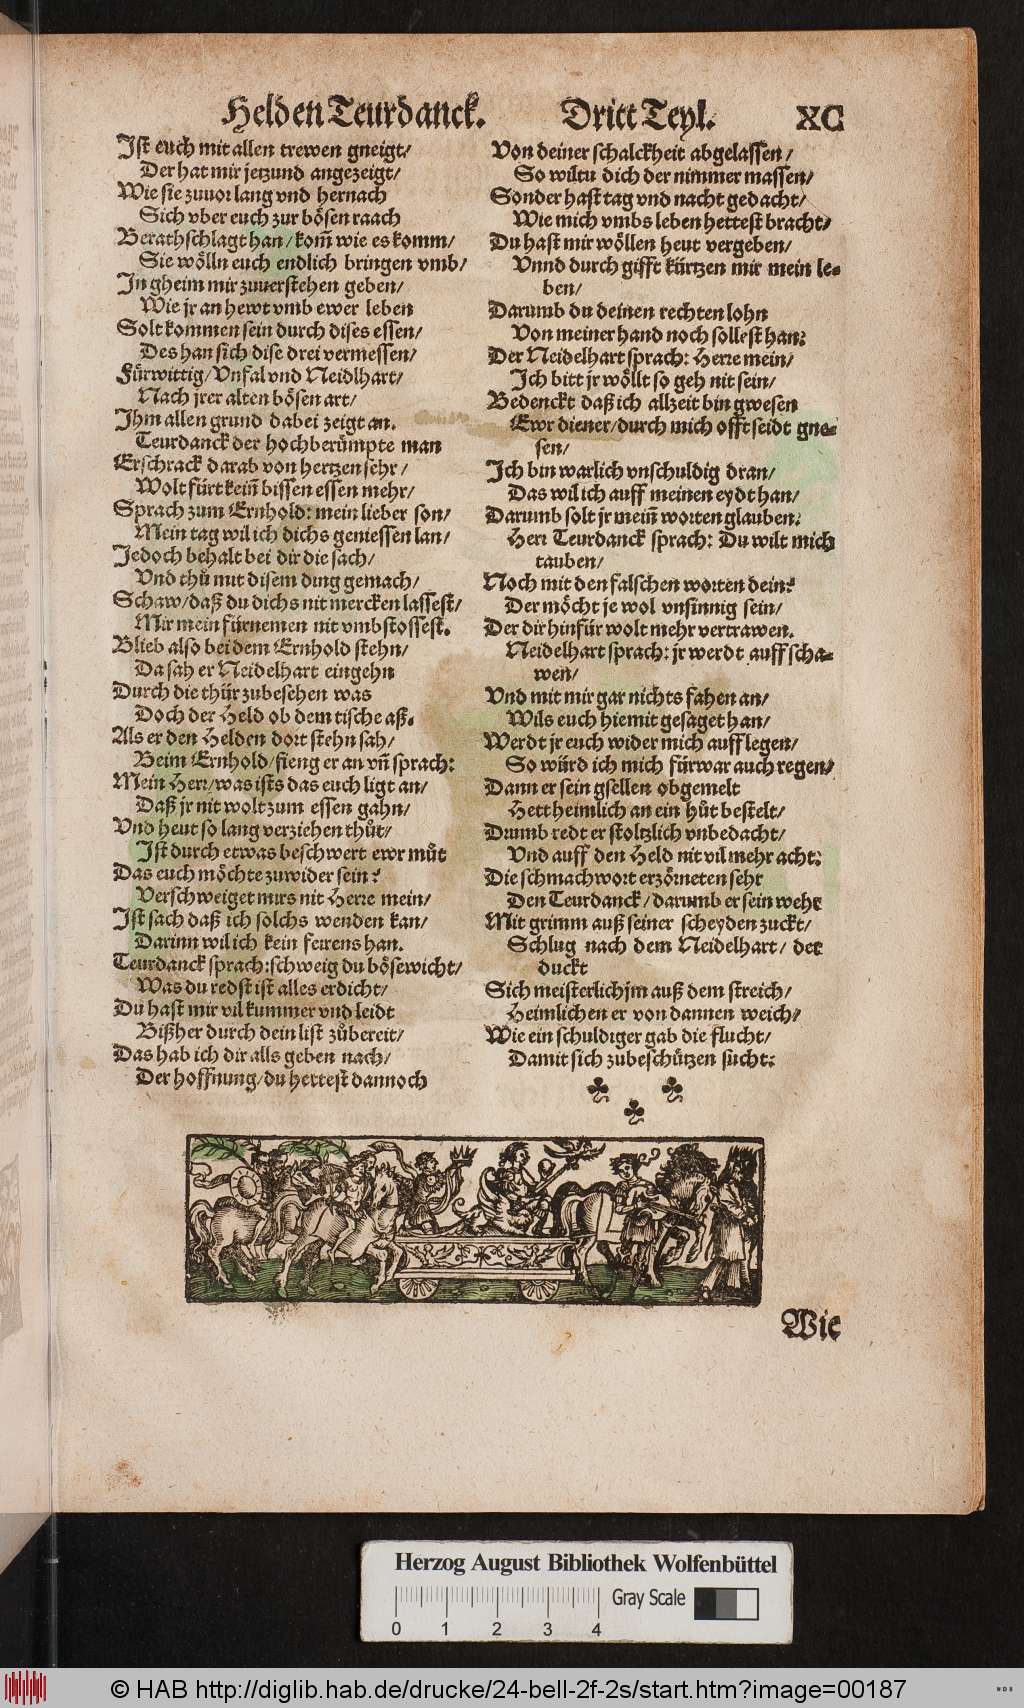 Helden Teurdanck. Dritt Teyl. XC
Ist euch mit allen trewen gneigt/
Der hat mir jetzund angezeigt/
Wie sie zuuor lang vnd hernach
Sich vber euch zur bösen raach
Berathschlagt han/kom̃ wie es komm/
Sie wölln euch endlich bringen vmb/
In gheim mir zuuerstehen geben/
Wie jr an hewt vmb ewer leben
Solt kommen sein durch dises essen/
Des han sich dise drei vermessen/
Fürwittig/Vnfal vnd Neidlhart/
Nach jrer alten bösen art/
Ihm allen grund dabei zeigt an.
Teurdanck der hochberümpte man
Erschrack darab von hertzen sehr/
Wolt fürt kein̄ bissen essen mehr/
Sprach zum Ernhold: mein lieber son/
Mein tag wil ich dichs geniessen lan/
Jedoch behalt bei dir die sach/
Vnd thů mit disem ding gemach/
Schaw/daß du dichs nit mercken lassest/
Mir mein fürnemen nit vmbstossest.
Blieb also bei dem Ernhold stehn/
Da sah er Neidelhart eingehn
Durch die thür zubesehen was
Doch der Held ob dem tische aß.
Als er den Helden dort stehn sah/
Beim Ernhold/fieng er an vn̄ sprach:
Mein Herr/was ists das euch ligt an/
Daß jr nit wolt zum essen gahn/
Vnd heut so lang verziehen thůt/
Ist durch etwas beschwert ewr můt
Das euch möchte zuwider sein?
Verschweiget mirs nit Herre mein/
Ist sach daß ich solchs wenden kan/
Darinn wil ich kein feirens han.
Teurdanck sprach:schweig du bösewicht/
Was du redst ist alles erdicht/
Du hast mir vil kummer vnd leidt
Bißher durch dein list zůbereit/
Das hab ich dir alls geben nach/
Der hoffnung/du hettest dannoch
Von deiner schalckheit abgelassen/
So wiltu dich der nimmer massen/
Sonder hast tag vnd nacht gedacht/
Wie mich vmbs leben hettest bracht/
Du hast mir wöllen heut vergeben/
Vnnd durch gifft kürtzen mir mein le-
ben/
Darumb du deinen rechten lohn
Von meiner hand noch sollest han:
Der Neidelhart sprach: Herre mein/
Ich bitt jr wöllt so geh nit sein/
Bedenckt daß ich allzeit bin gwesen
Ewr diener/durch mich offt seidt gne-
sen/
Ich bin warlich vnschuldig dran/
Das wil ich auff meinen eydt han/
Darumb solt jr mein̄ worten glauben:
Herr Teurdanck sprach: Du wilt mich
tauben/
Noch mit den falschen worten dein?
Der möcht je wol vnsinnig sein/
Der dir hinfür wolt mehr vertrawen.
Neidelhart sprach: jr werdt auff scha-
wen/
Vnd mit mir gar nichts fahen an/
Wils euch hiemit gesaget han/
Werdt jr euch wider mich aufflegen/
So würd ich mich fürwar auch regen/
Dann er sein gsellen obgemelt
Hett heimlich an ein hůt bestelt/
Drumb redt er stoltzlich vnbedacht/
Vnd auff den Held nit vil mehr acht:
Die schmachwort erzörneten sehr
Den Teurdanck/darumb er sein wehr
Mit grimm auß seiner scheyden zuckt/
Schlug nach dem Neidelhart/ der
duckt
Sich meisterlich jm auß dem streich/
Heimlichen er von dannen weich/
Wie ein schuldiger gab die flucht/
Damit sich zubeschützen sucht:
Wie
Herzog August Bibliothek Wolfenbüttel
Gray Scale
0 1 2 3 4
© HAB http://diglib.hab.de/drucke/24-bell-2f-2s/start.htm?image=00187